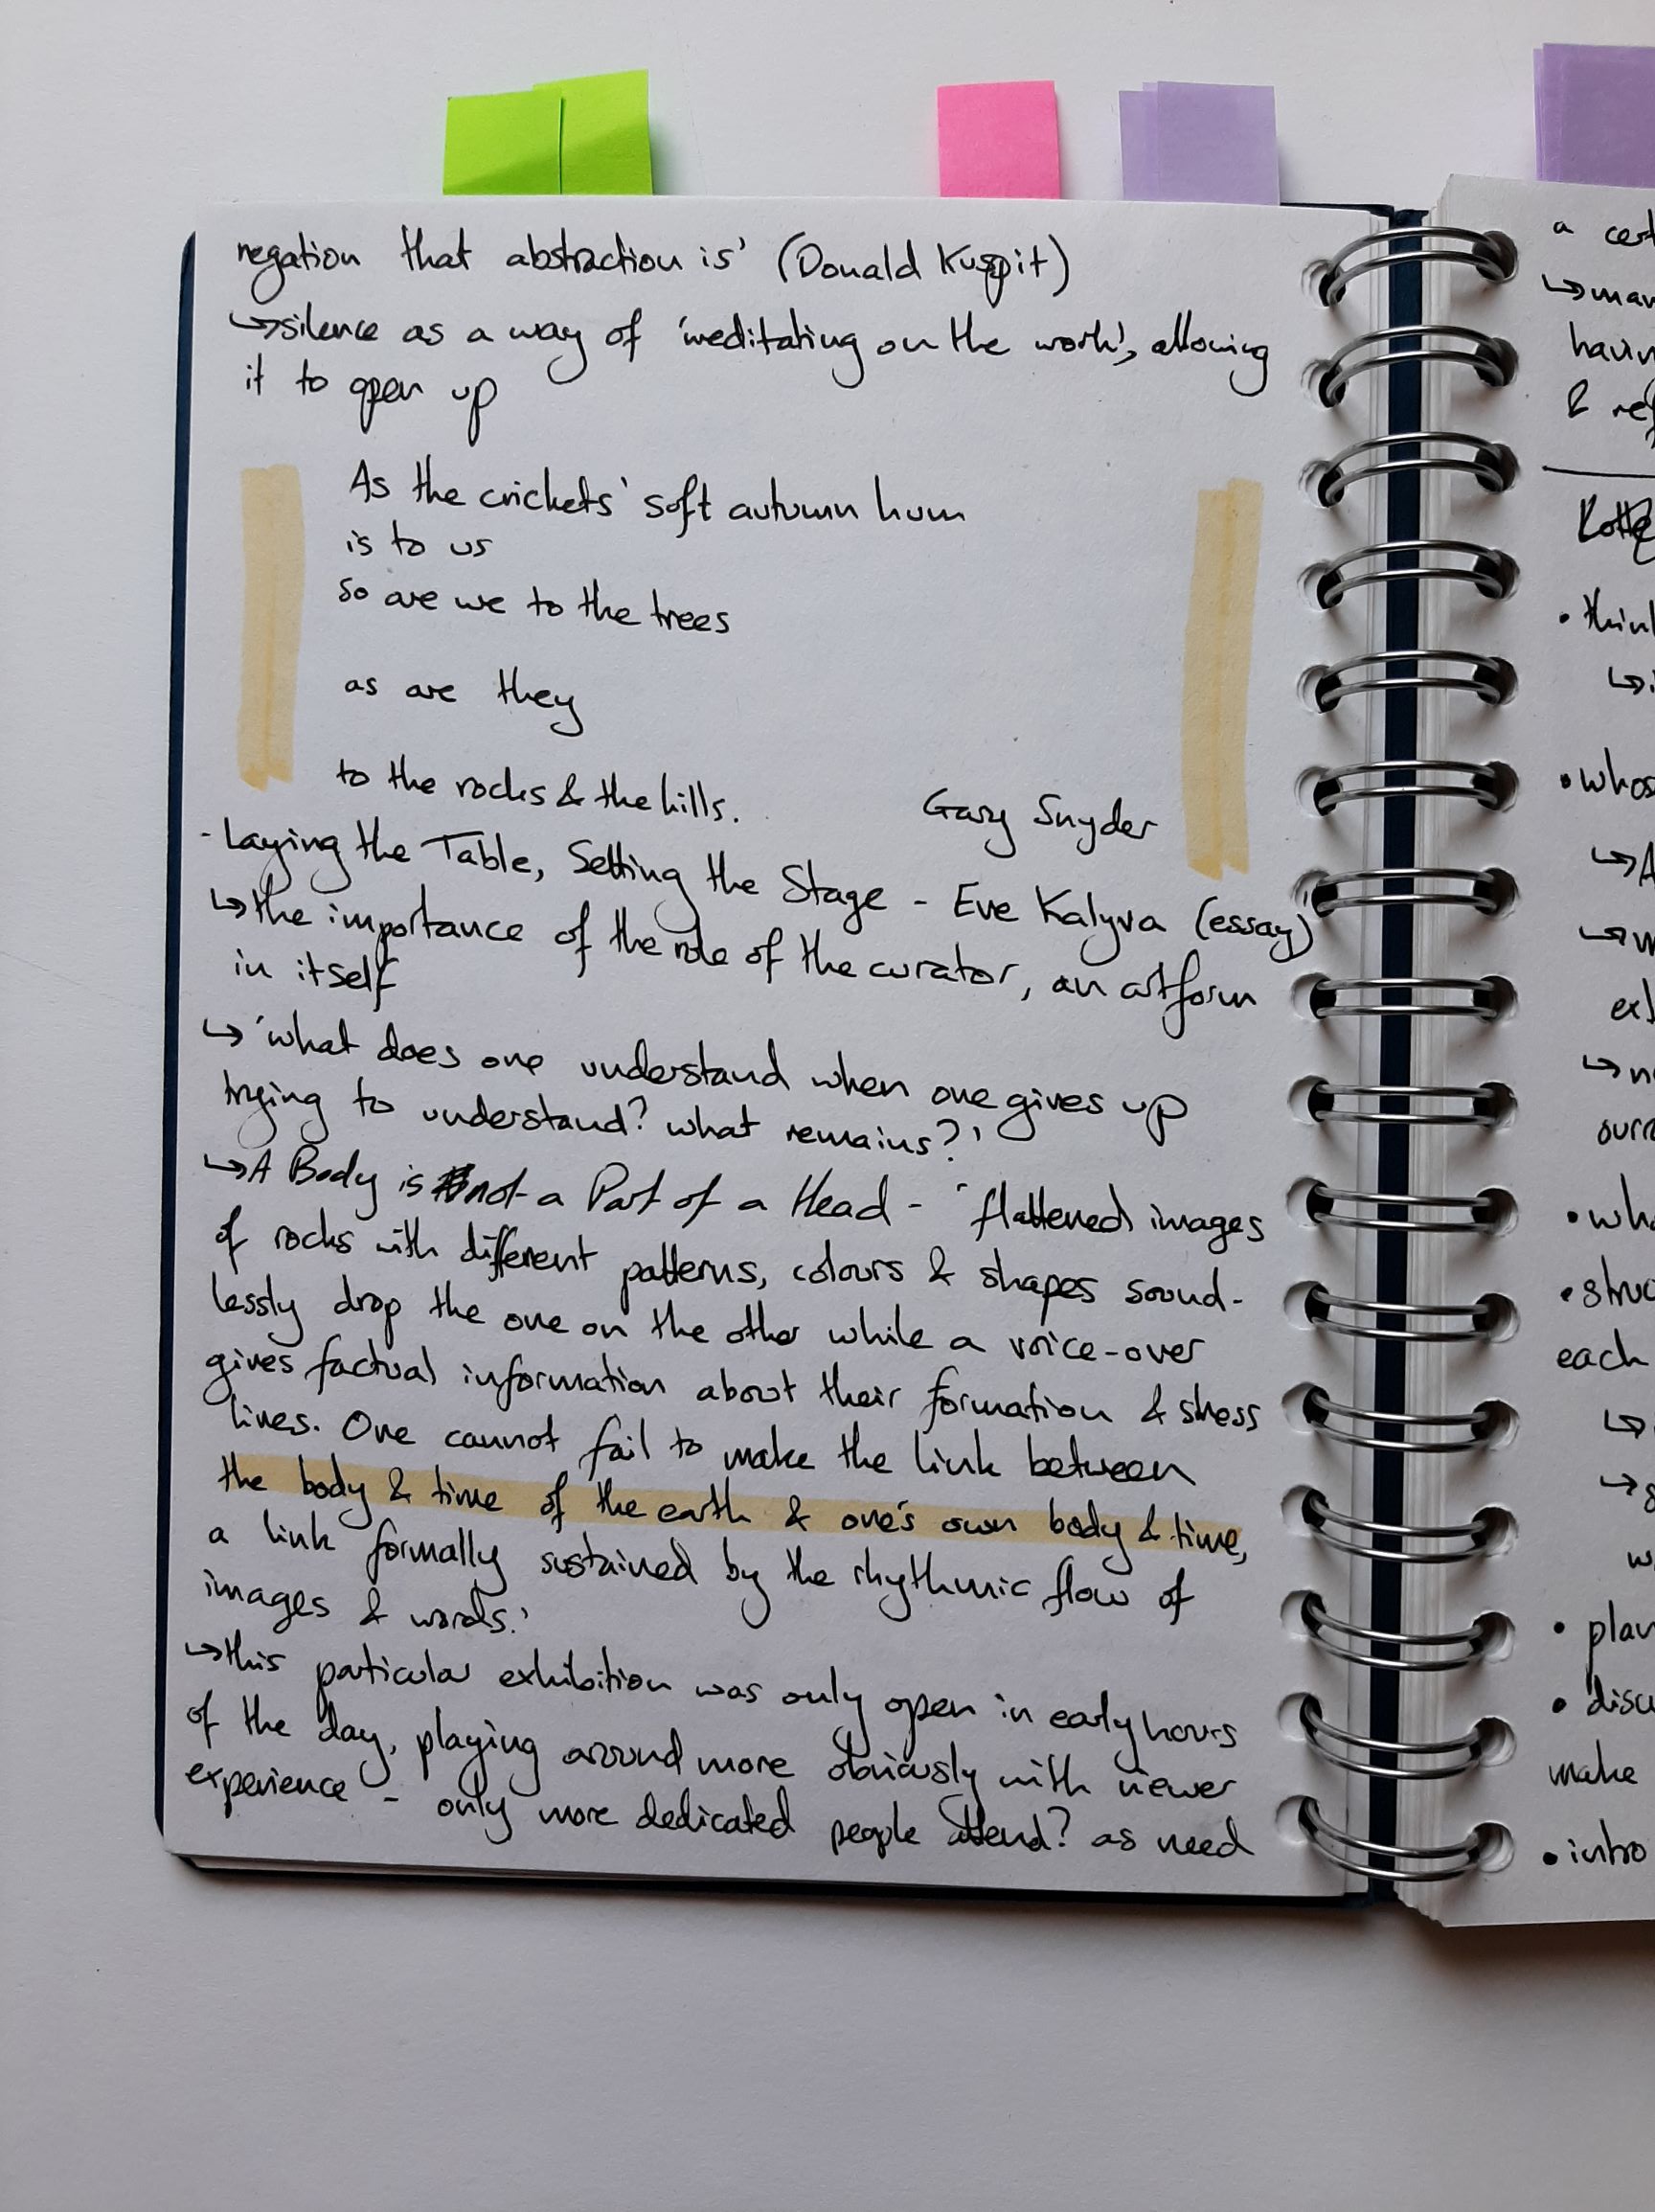 negation that abstraction is' (Donald Kuspit)
↳silence as a way of 'meditating on the work', allowing
it to open up
As the crickets' soft autumn hum
is to us
so are we to the trees
as are they
to the rocks & the hills.
Gary Snyder
- Laying the Table, Setting the Stage - Eve Kalyva (essay)
↳the importance of the role of the curator, an artform
in itself
↳ 'what does one understand when one gives up
trying to understand? what remains?'
↳A Body is not a Part of a Head - 'flattened images
of rocks with different patterns, colours & shapes sound-
lessly drop the one on the other while a voice-over
gives factual information about their formation & stress
lines. One cannot fail to make the link between
the body & time of the earth & one's own body & time,
a link formally sustained by the rhythmic flow of
images & words.'
↳this particular exhibition was only open in early hours
of the day, playing around more obviously with viewer
experience - only more dedicated people attend? as need
a
↳
&
•
↳
•
↳
↳
↳
•
•
each
↳
↳
•
•
make
• intro